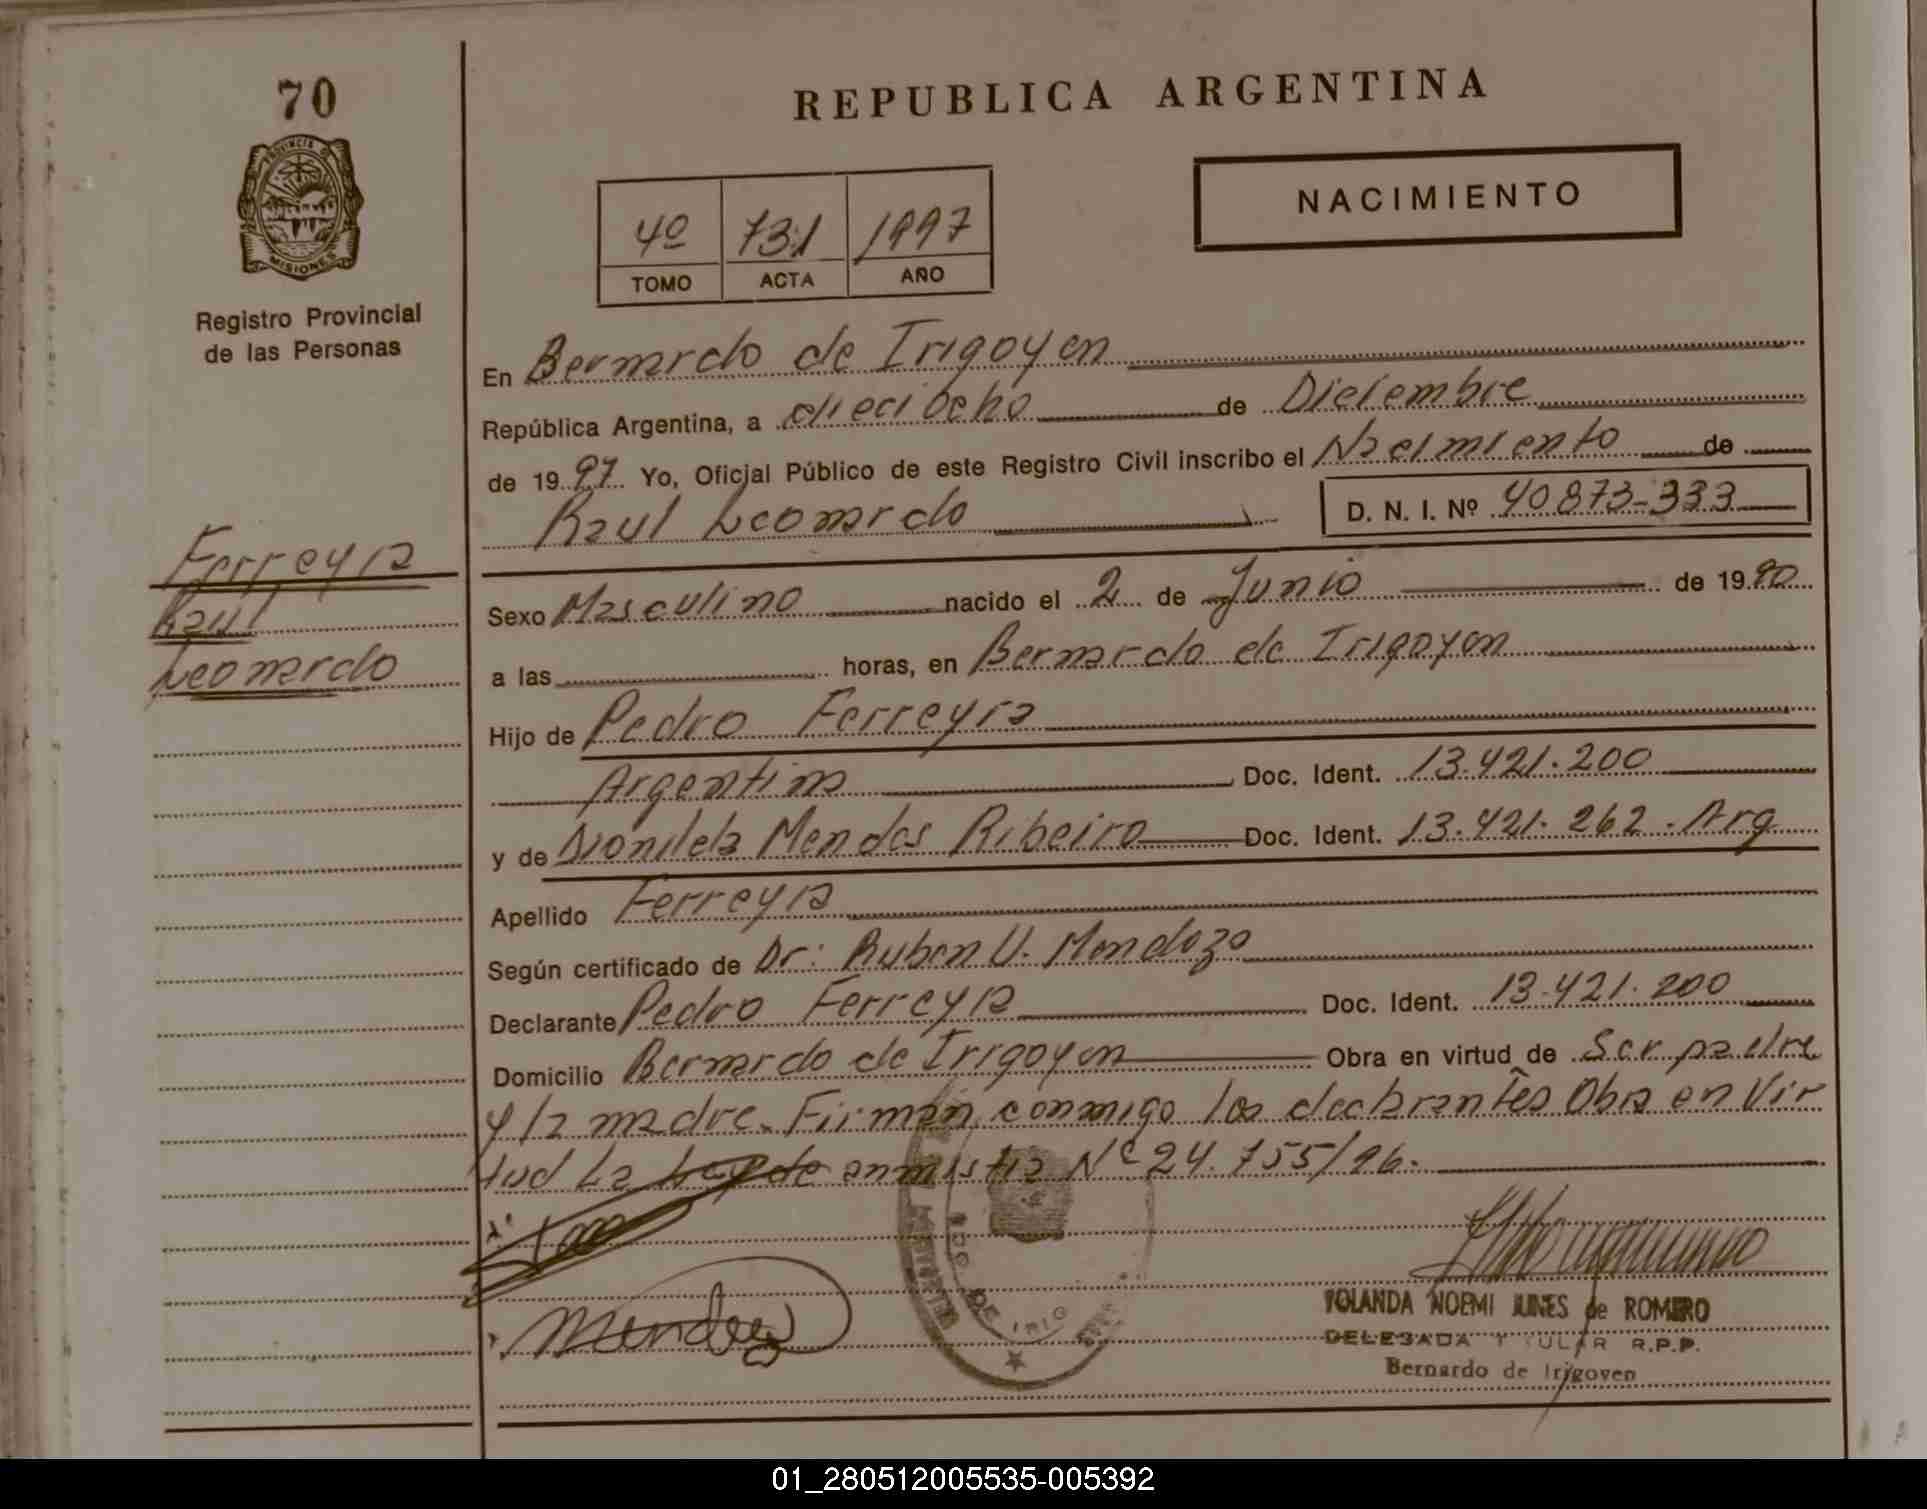 70
PROVINCIA DE
MISIONES
Registro Provincial
de las Personas
Ferreyra
Raul
Leonardo
REPUBLICA ARGENTINA
NACIMIENTO
4º 731 1997
TOMO ACTA AÑO
En Bernardo de Irigoyen
República Argentina, a dieciocho de Diciembre
de 1997 Yo, Oficial Público de este Registro Civil inscribo el Nacimiento de
Raul Leonardo D. N. I. Nº 40873-333
Sexo Masculino nacido el 2 de Junio de 1990
a las horas, en Bernardo de Irigoyen
Hijo de Pedro Ferreyra
Argentina Doc. Ident. 13.421.200
y de Mendes Ribeiro Doc. Ident. 13.421.262. Arg
Apellido Ferreyra
Según certificado de Dr: Ruben U. Mendoza
Declarante Pedro Ferreyra Doc. Ident. 13.421.200
Domicilio Bernardo de Irigoyen Obra en virtud de Ser padre
y la madre. Firman conmigo los declarantes Obra en Vir
tud La Ley de amnistia Nº 24.755/96.
Mendez
YOLANDA NOEMI JUNES de ROMERO
DELEGADA TITULAR R.P.P.
Bernardo de Irigoyen
01_280512005535-005392